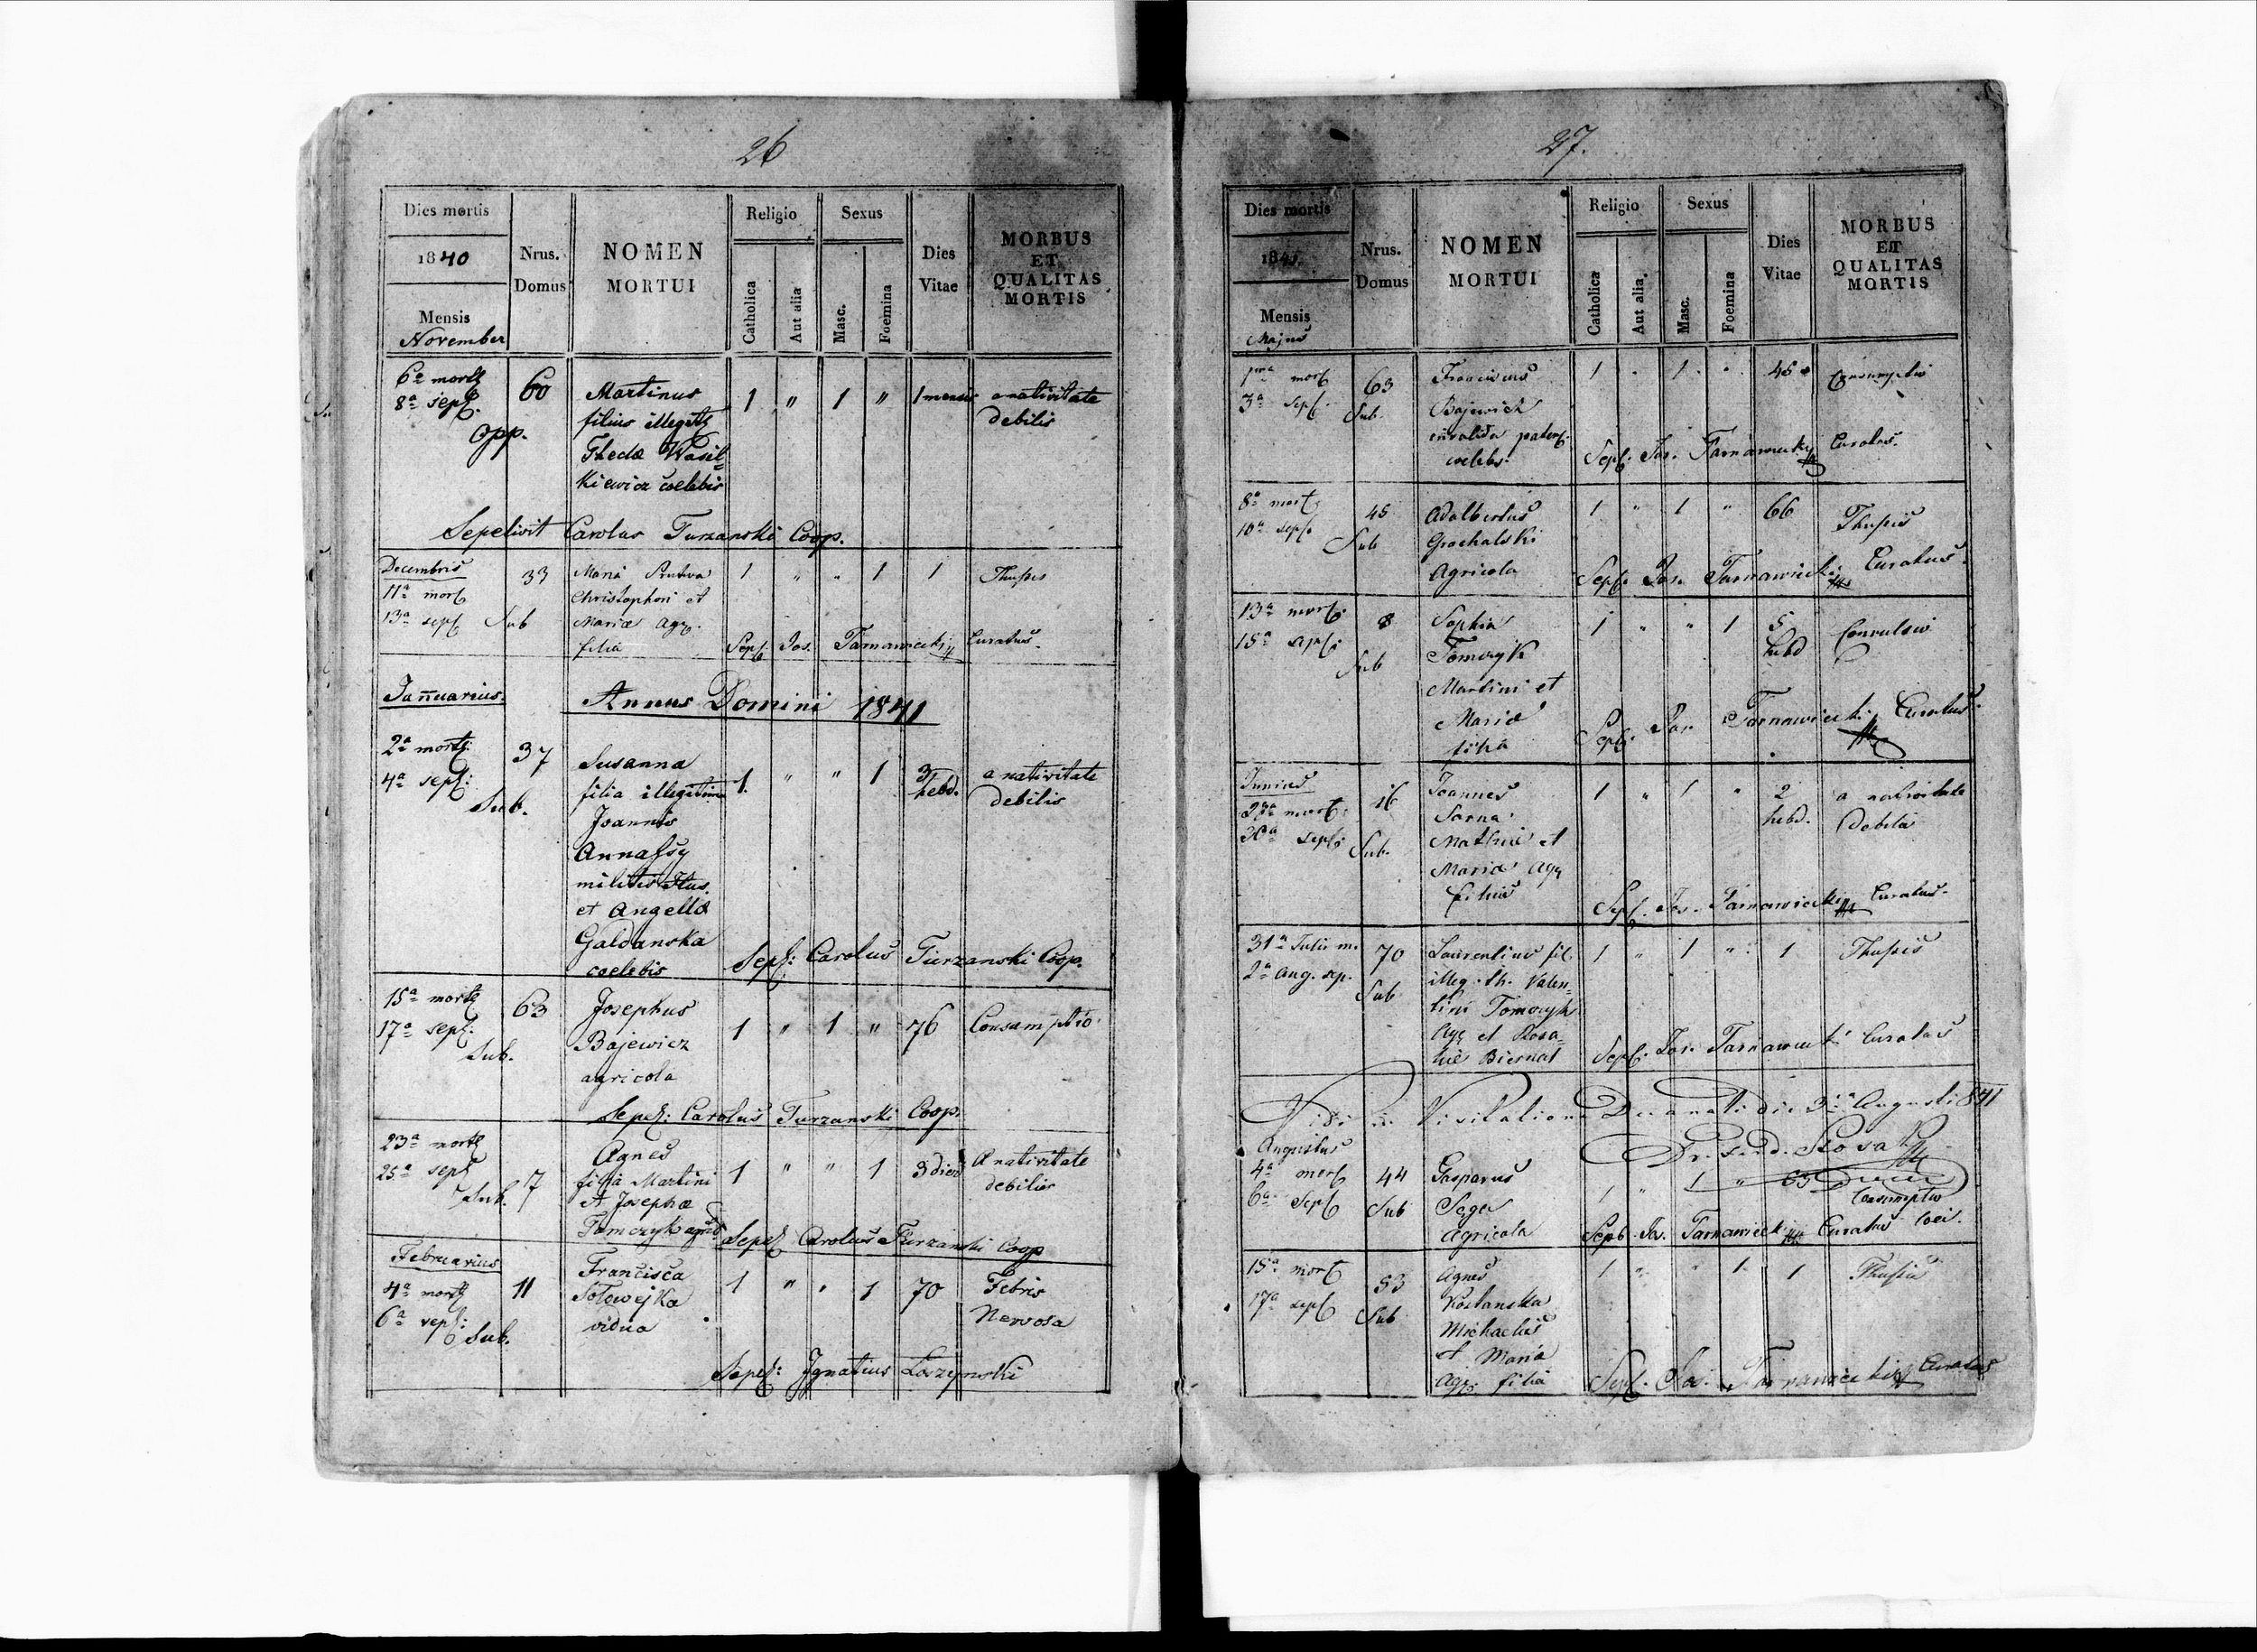 26
Dies mortis
1840
Mensis
November
Nrus.
Domus
NOMEN
MORTUI
Religio
Catholica
Aut alia
Sexus
Masc.
Foemina
Dies
Vitae
MORBUS
ET
QUALITAS
MORTIS
6a mort 60 Martinus 1 " 1 " 1 mensis a nativitate
8a sept. filius illegit debilis
Opp. Theclæ Wasil=
kiewicz coelebis
Sepelivit Carolus Turzanski Coop.
Decembris 33 Maria 1 " " 1 1 Thussis
11a mort Christophori et
13a sept Sub Mariæ Agr.
filia Sept. Jos. Tarnawiecki Curatus.
Januarius. Annus Domini 1841
2a mort. 37 Susanna 1. " " 1 3 hebd. a nativitate
4a sept: filia illegitima debilis
Sub. Joannis
militis
et Angellæ
Galdanska
coelebis Sept: Carolus Turzanski Coop.
15a mort 63 Josephus 1 " 1 " 76 Consumptio
17a sept. Bajewicz
Sub. agricola
Sepel: Carolus Turzanski Coop.
23a mort Agnes 1 " " 1 3 dies A nativitate
25a sept 7 filia Martini debilis
Sub. et Josephæ
Tomczyk
Sepel Carolus Turzanski Coop
Februarius Francisca
4a mort 11 Sołowejka 1 " " 1 70 Febris
6a sept: vidua Nervosa
Sub.
Sepel: Ignatius Łoszynski
27.
Dies mortis
1841.
Mensis
Majus
Nrus.
Domus
NOMEN
MORTUI
Religio
Catholica
Aut alia.
Sexus
Masc.
Foemina
Dies
Vitae
MORBUS
ET
QUALITAS
MORTIS
1ma mort 63 Franciscus 1 " 1 " 45 Consumptio
3a sept. Sub. Bajewicz
invalida patent.
coelebs. Sept: Jos. Tarnawiecki Curatus.
8a mort 45 Adalbertus 1 " 1 " 66 Thussis
10a sept. Sub Grochalski
Agricola Sept. Jos. Tarnawiecki Curatus.
13a mort. 8 Sophia 1 " " 1 5 hebd Convulsio
15a sept: Tomczyk
Sub Martini et
Mariæ
filia Sept: Jos. Tarnawiecki Curatus.
Junius Joannes 1 " 1 " 2 hebd. a nativitate
28a mort. 16 Sarna debilis
30a sept: Sub. Mathiæ et
Mariæ Agr
filius Sept. Jos. Tarnawiecki Curatus.
31a Julii m. 70 Laurentius fil. 1 " 1 " 1 Thussis
2a Aug. sep. Sub illeg. th. Valen=
tini Tomczyk
Agr et Rosa=
liæ Biernat Sept. Jos. Tarnawiecki Curatus
Vidi in Visitatione Decanali die 3a Augusti 841
Augustus
4a mort 44 Gasparus 1 " 1 " 65 Consumptio
6a Sept Sub
Agricola Sept. Jos. Tarnawiecki Curatus loci.
15a mort 53 Agnes 1 " " 1 1 Thussis
17a sept Sub Kostanska
Michaelis
et Maria
Agr. filia Sept. Jos. Tarnawiecki Curatus